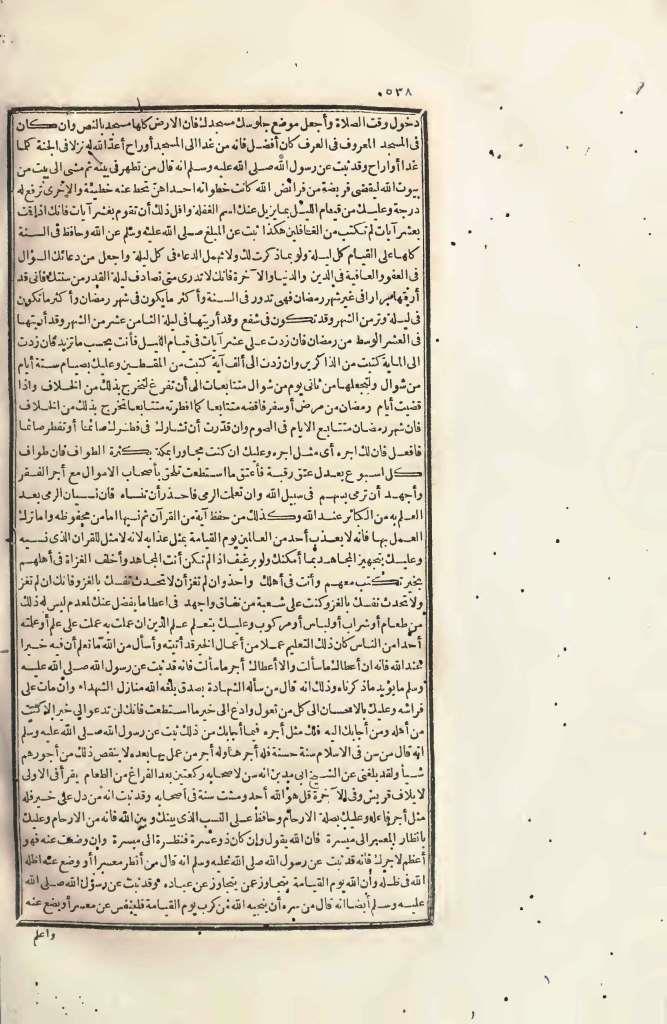 ٥٣٨
دخول وقت الصلاة وأجعل موضع جلوسك مسجدك فان الارض كلها مسجد بالنص وان كان
فى المسجد المعروف فى العرف كان أفضل فانه من غدا الى المسجد أو راح أعد الله له نزلا فى الجنة كلما
غدا أو راح وقد ثبت عن رسول الله صلى الله عليه وسلم انه قال من تطهر فى بيته ثم مشى الى بيت من
بيوت الله ليقضى فريضة من فرائض الله كانت خطواته احداهن تحط عنه خطيئة والاخرى ترفع له
درجة وعليك من قيام الليل بما يزيل عنك اسم الغفلة وأقل ذلك أن تقوم بعشر آيات فانك اذا قمت
بعشر آيات لم تكتب من الغافلين هكذا ثبت عن المبلغ صلى الله عليه وسلم عن الله وحافظ فى السنة
كلها على القيام كل ليلة ولو بما ذكرت لك ولا تهمل الدعاء فى كل ليلة واجعل من دعائك السؤال
فى العفو والعافية فى الدين والدنيا والآخرة فانك لا تدرى متى تصادف ليلة القدر من سنتك فانى قد
أريتها مرارا فى غير شهر رمضان فهى تدور فى السنة وأكثر ما يكون فى شهر رمضان وأكثر ما تكون
فى ليلة وتر من الشهر وقد تكون فى شفع وقد أريتها فى ليلة الثامن عشر من الشهر وقد أريتها
فى العشر الوسط من رمضان فان زدت على عشر آيات فى قيام الليل فأنت بحسب ما تزيد فان زدت
الى المائة كتبت من الذاكرين وان زدت الى ألف آية كتبت من المقسطين وعليك بصيام ستة أيام
من شوال ولتجعلها من ثانى يوم من شوال متتابعات الى أن تفرغ لتخرج بذلك من الخلاف واذا
قضيت أيام رمضان من مرض أو سفر فاقضه متتابعا كما افطرته متتابعا تخرج بذلك من الخلاف
فان شهر رمضان متتابع الايام فى الصوم وان قدرت أن تشارك فى فطرك صائما أو تفطر صائما
فافعل فان لك اجره أى مثل اجره وعليك ان كنت مجاورا بمكة بكثرة الطواف فان طواف
كل اسبوع يعدل عتق رقبة فأعتق ما استطعت تلحق بأصحاب الاموال مع أجر الفقر
وأجهد أن ترمى بسهم فى سبيل الله وان تعلمت الرمى فاحذر أن تنساه فان نسيان الرمى بعد
العلم به من الكبائر عند الله وكذلك من حفظ آية من القرآن ثم نسيها اما من محفوظه واما ترك
العمل بها فانه لا يعذب أحد من العالمين يوم القيامة بمثل عذابه لانه لا مثل للقران الذى نسيه
وعليك بتجهيز المجاهد بما أمكنك ولو برغيف اذا لم تكن أنت المجاهد وأخلف الغزاة فى أهلهم
بخير تكتب معهم وأنت فى أهلك واحذر ان لم تغز أن لا تحدث نفسك بالغزو فانك ان لم تغز
ولا تحدث نفسك بالغزو كنت على شعبة من نفاق واجهد فى اعطاء ما يفضل عنك لمعدم ليس له ذلك
من طعام أو شراب أو لباس أو مركوب وعليك بتعلم علم الدين ان عملت به عملت على علم أو علمته
أحدا من الناس كان ذلك التعليم عملا من أعمال الخير قد أتيته وأسأل من الله ما تعلم أن فيه خيرا
عند الله فانه ان أعطاك ما سألت والا أعطاك أجر ما سألت فانه قد ثبت عن رسول الله صلى الله عليه
وسلم ما يؤيد ما ذكرناه وذلك انه قال من سأل الشهادة بصدق بلغه الله منازل الشهداء وان مات على
فراشه وعليك بالاحسان الى كل من تعول وادع الى خير ما استطعت فانك لن تدعو الى خير الا كنت
من أهله ومن أجابك اليه فلك مثل أجره فيما أجابك من ذلك ثبت عن رسول الله صلى الله عليه وسلم
انه قال من سن فى الاسلام سنة حسنة فله أجرها وله أجر من عمل بها بعده لا ينقص ذلك من أجورهم
شيأ ولقد بلغنى عن الشيخ ابى مدين انه سن لاصحابه ركعتين بعد الفراغ من الطعام يقرأ فى الاولى
لايلاف قريش وفى الآخرة قل هو الله أحد ومشت سنة فى أصحابه وقد ثبت انه من دل على خير فله
مثل أجر فاعله وعليك بصلة الارحام وحافظ على النسب الذى بينك وبين الله فانه من الارحام وعليك
بانظار المعسر الى ميسرة فان الله يقول وان كان ذو عسرة فنظرة الى ميسرة وان وضعت عنه فهو
أعظم لاجرك فانه قد ثبت عن رسول الله صلى الله عليه وسلم انه قال من أنظر معسرا أو وضع عنه اظله
الله فى ظله وأن الله يوم القيامة يتجاوز عمن يتجاوز عن عباده وقد ثبت عن رسول الله صلى الله
عليه وسلم أيضا انه قال من سره أن ينجيه الله من كرب يوم القيامة فلينفس عن معسر أو يضع عنه
واعلم